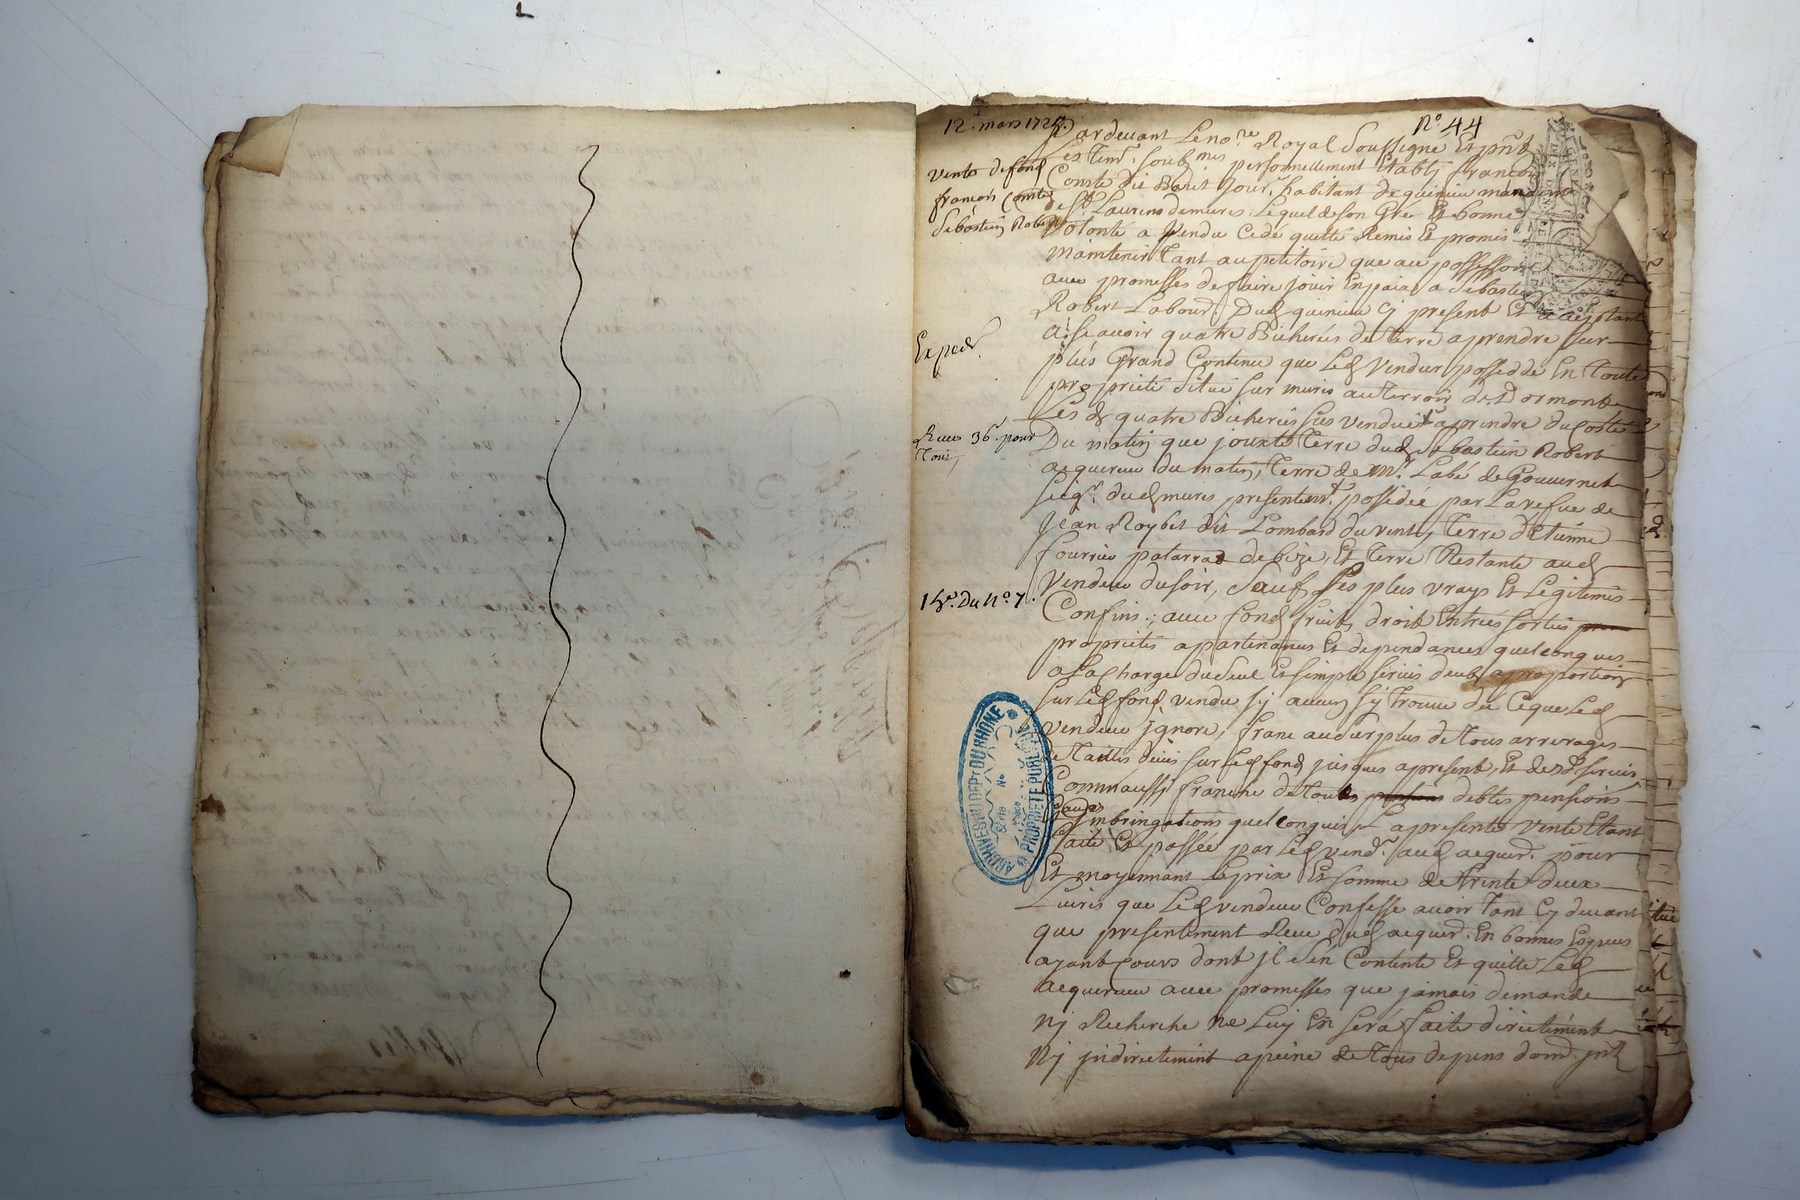 12 mars 172
N.º 44
vente de fond
françois Comte
Sébastien Robert
Exped.
Receu 36ˢ pour
Tout
Du N.º 7.
Pardevant Le noʳᵉ Royal Soussigné Et pñt
es temˢ soubˢ nés personnellement Estably françois
Comte dit Baret Jourˢ habitant de quinieu mandemᵗ
de Sᵗ Laurens de mures, Lequel de son Gre Et bonne
volonté a vendu Cedé quitté Remis Et promis
maintenir Tant au petitoire que au possessoire
avec promesses de faire jouir En paix a Sebastien
Robert Labourʳ Dud quinieu Cy present Et acceptant
a Scavoir quatre Bicherées de terre a prendre sur
plus Grand Contenu que Led Vendeur possedde En Toute
propriété situé sur mures au Terroir de Dormont
Les d quatre Bicherées sus vendues a prendre du Costé
Du matin que jouxte Terre dud Sebastien Robert
acquereur du matin, Terre de Mʳ Labé de Gouvernet
Seigʳ dud mures presentemᵗ possedée par La vefue de
Jean Roybet dit Lombard du vent, Terre d'Etienne
fourrier patarra de bize, Et terre Restante aud
Vendeur du soir, Sauf ses plus vrays Et Legitimes
Confins; avec fond fruits droit Entrées sorties
proprietés apartenances Et dependances quelconques
a La charge du seul Et simple servis deub a proportion
sur Led fond vendu sy aucun sy Trouve du Ceque Led
vendeur jgnore, franc audurplus de tous arrerages
de Tailles deües sur Led fond jusques a present, Et de d servis
Comm'aussy franche de toutes debtes pensions
Et autres
jmbringations quelconques, La presente vente Etant
faite Et passée par Led vendʳ aud acquerʳ pour
Et moyennant Le prix Et somme de Trente deux
Livres que Led vendeur Confesse avoir Tant Cy devant
que presentement Receu dud acquerʳ En bonnes Especes
ayant Cours dont jl s'en Contente Et quitte Led
acquereur avec promesses que jamais demande
Ny Recherche ne Luy En sera faite directement
Ny jndirectement a peine de Tous depens domˢ jnt
ARCHIVES DU DEPᵗ DU RHÔNE
PROPRIÉTÉ PUBLIQUE